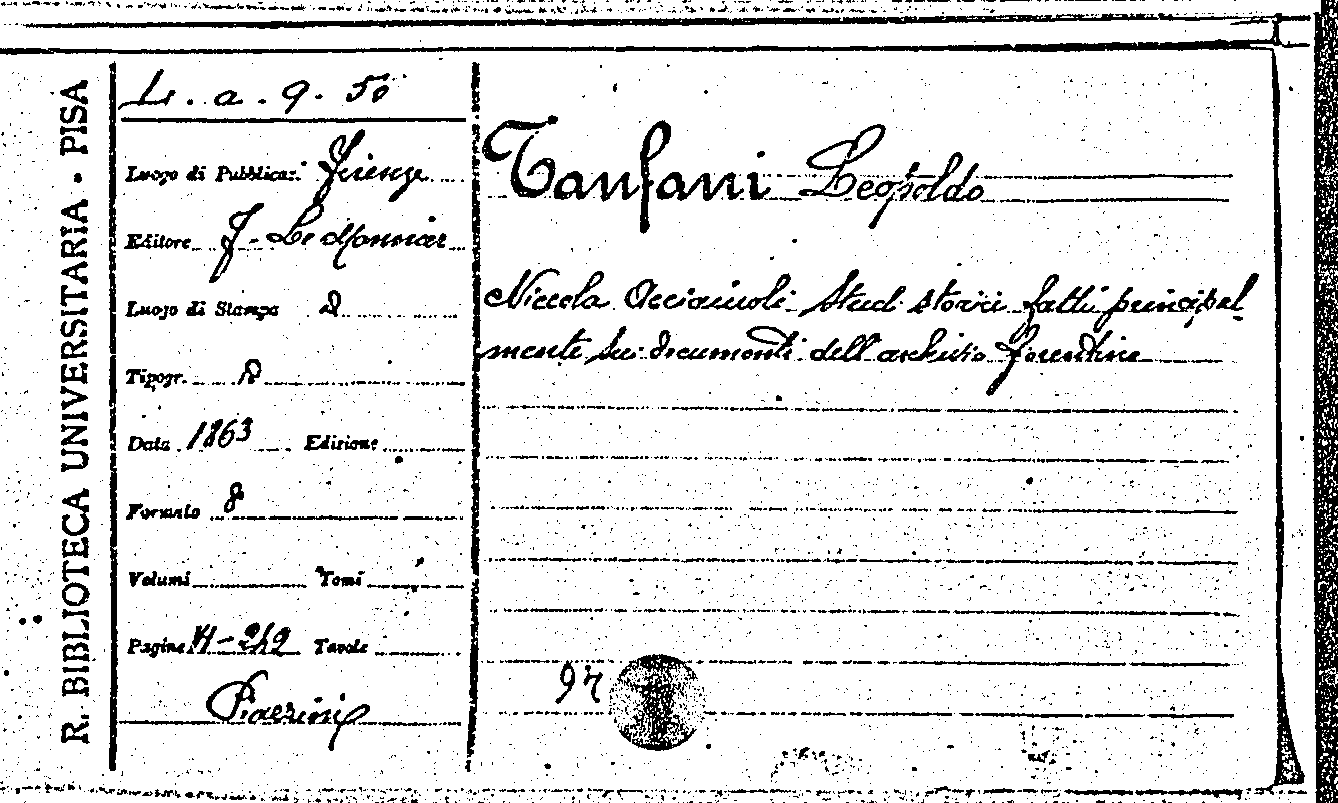 R. BIBLIOTECA UNIVERSITARIA - PISA
L. a. 9. 50
Luogo di Pubblicaz. Firenze
Editore F. Le Monnier
Luogo di Stampa
Tipogr.
Data 1863 Edizione
Formato 8
Volumi Tomi
Pagine VI-242 Tavole
Tanfani Leopoldo
Niccola Acciaiuoli studi storici fatti principal-
mente su documenti dell'archivio fiorentino
94